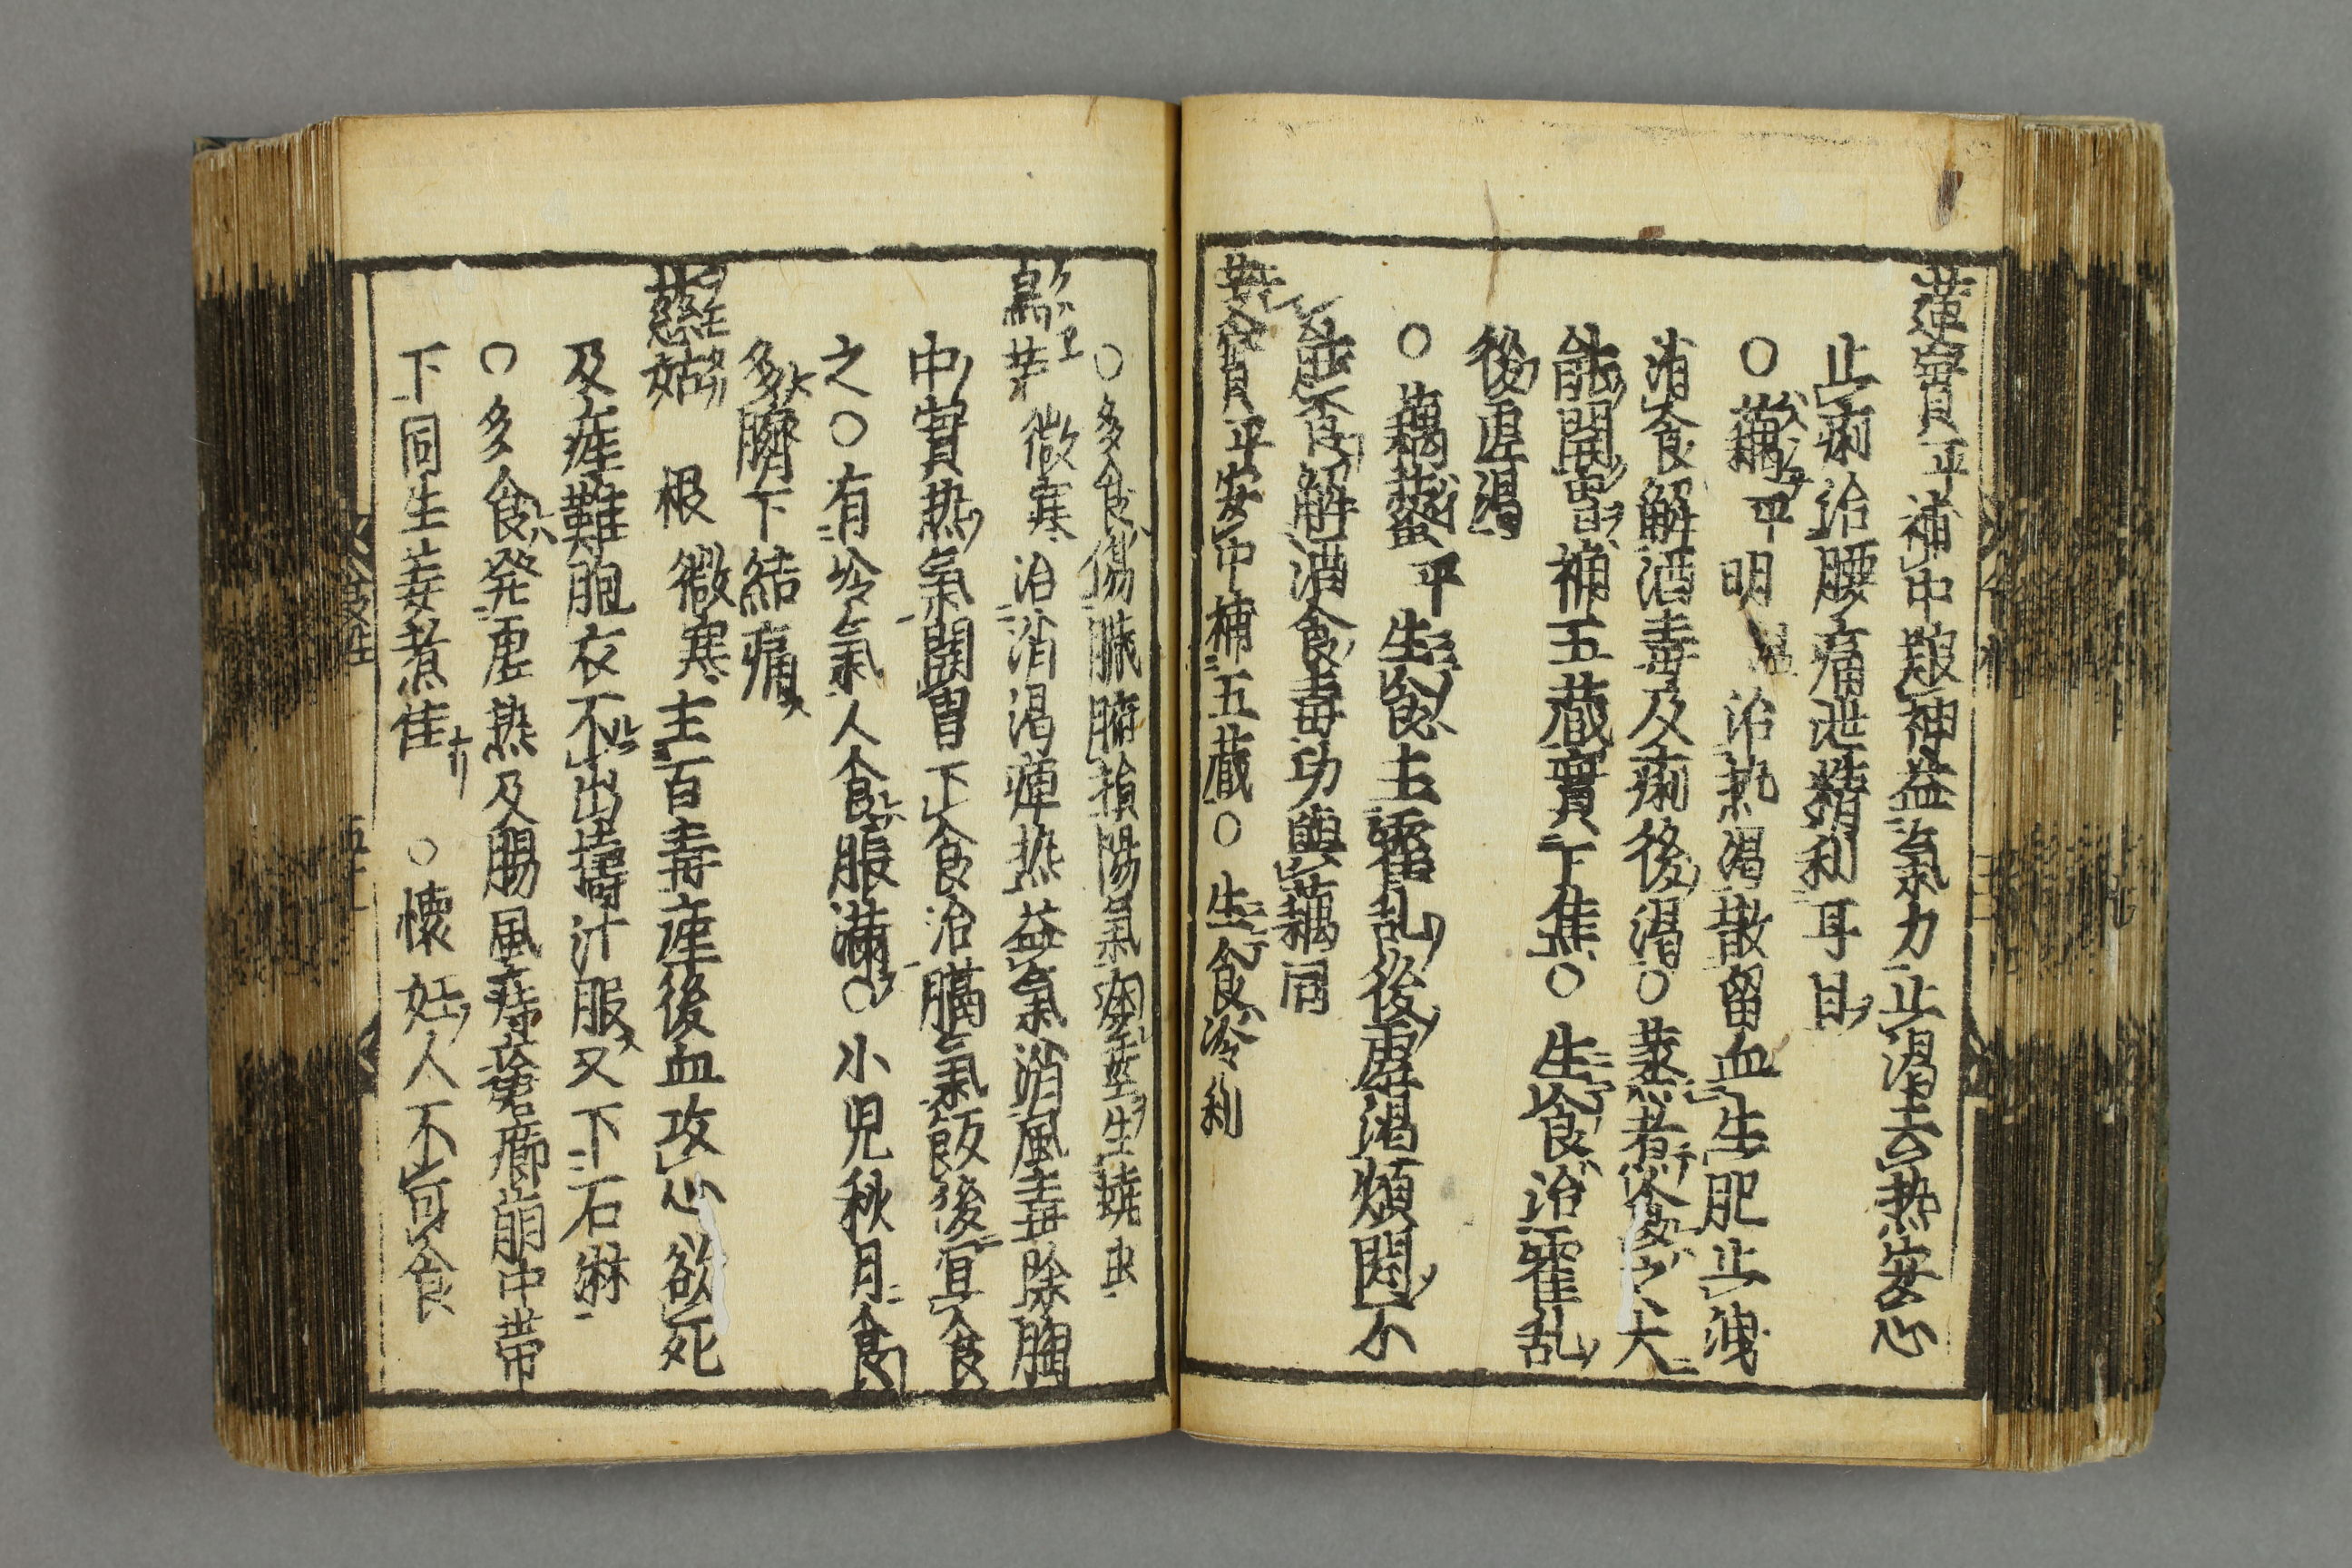 蓮實平補中養神益氣力止渴去热安心
止痢治腰痛泄精利耳目
○藕平明 温 治热渴散留血生肥止洩
消食解酒毒及痢後渴○蒸煮食之大
能開胃補五蔵實下焦○生食治霍乱
後虚渴
○藕蔤平生食主霍乱後虚渴煩悶不
能食解酒食毒功與藕同
芡實平安中補五蔵○生食冷利
○多食傷臓腑損陽氣痿莖生蟯虫
烏芋微寒治消渴痺热益氣消風毒除胸
中實热氣開胃下食治膈氣飯後宜食
之○有冷氣人食脹満○小児秋月食
多臍下結痛
慈姑根微寒主百毒産後血攻心欲死
及産難胞衣不出擣汁服又下石淋
○多食発虚热及腸風痔瘡癤崩中帯
下同生姜煮佳 ○懐妊人不可食